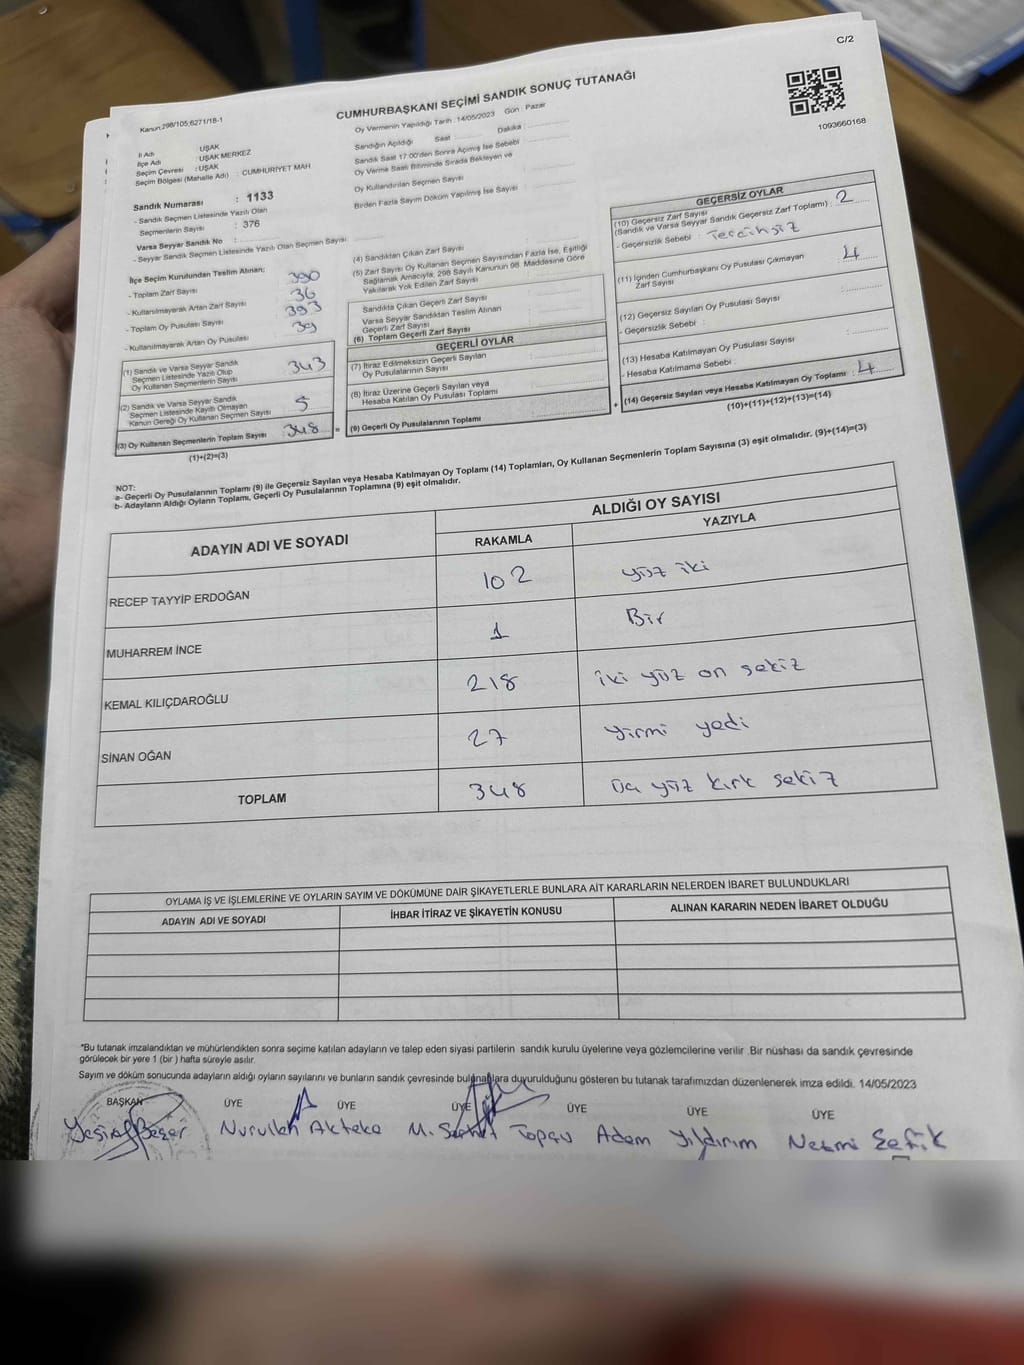 C/2
Kanun:298/105;6271/18-1
CUMHURBAŞKANI SEÇİMİ SANDIK SONUÇ TUTANAĞI
Oy Vermenin Yapıldığı Tarih : 14/05/2023 Gün : Pazar
Sandığın Açıldığı Saat : Dakika :
Sandık Saat 17:00'den Sonra Açılmış İse Sebebi
Oy Verme Saati Bitiminde Sırada Bekleyen ve
Oy Kullandırılan Seçmen Sayısı
Birden Fazla Sayım Döküm Yapılmış İse Sayısı :
1093660168
İl Adı : UŞAK
İlçe Adı : UŞAK MERKEZ
Seçim Çevresi : UŞAK
Seçim Bölgesi (Mahalle Adı) : CUMHURİYET MAH
Sandık Numarası : 1133
- Sandık Seçmen Listesinde Yazılı Olan
Seçmenlerin Sayısı : 376
Varsa Seyyar Sandık No :
- Seyyar Sandık Seçmen Listesinde Yazılı Olan Seçmen Sayısı :
İlçe Seçim Kurulundan Teslim Alınan:
- Toplam Zarf Sayısı 390
- Kullanılmayarak Artan Zarf Sayısı 36
- Toplam Oy Pusulası Sayısı 393
- Kullanılmayarak Artan Oy Pusulası 39
(1) Sandık ve Varsa Seyyar Sandık
Seçmen Listesinde Yazılı Olup
Oy Kullanan Seçmenlerin Sayısı 343
(2) Sandık ve Varsa Seyyar Sandık
Seçmen Listesinde Kayıtlı Olmayan
Kanun Gereği Oy Kullanan Seçmen Sayısı 5
(3) Oy Kullanan Seçmenlerin Toplam Sayısı 348 =
(1)+(2)=(3)
(4) Sandıktan Çıkan Zarf Sayısı
(5) Zarf Sayısı Oy Kullanan Seçmen Sayısından Fazla İse, Eşitliği
Sağlamak Amacıyla, 298 Sayılı Kanunun 98. Maddesine Göre
Yakılarak Yok Edilen Zarf Sayısı
Sandıkta Çıkan Geçerli Zarf Sayısı
Varsa Seyyar Sandıktan Teslim Alınan
Geçerli Zarf Sayısı
(6) Toplam Geçerli Zarf Sayısı
GEÇERLİ OYLAR
(7) İtiraz Edilmeksizin Geçerli Sayılan
Oy Pusulalarının Sayısı
(8) İtiraz Üzerine Geçerli Sayılan veya
Hesaba Katılan Oy Pusulası Toplamı
(9) Geçerli Oy Pusulalarının Toplamı +
GEÇERSİZ OYLAR
(10) Geçersiz Zarf Sayısı
(Sandık ve Varsa Seyyar Sandık Geçersiz Zarf Toplamı) : 2
- Geçersizlik Sebebi : Tercihsiz
(11) İçinden Cumhurbaşkanı Oy Pusulası Çıkmayan
Zarf Sayısı 4
(12) Geçersiz Sayılan Oy Pusulası Sayısı
- Geçersizlik Sebebi :
(13) Hesaba Katılmayan Oy Pusulası Sayısı
- Hesaba Katılmama Sebebi :
(14) Geçersiz Sayılan veya Hesaba Katılmayan Oy Toplamı : 4
(10)+(11)+(12)+(13)=(14)
NOT:
a- Geçerli Oy Pusulalarının Toplamı (9) ile Geçersiz Sayılan veya Hesaba Katılmayan Oy Toplamı (14) Toplamları, Oy Kullanan Seçmenlerin Toplam Sayısına (3) eşit olmalıdır. (9)+(14)=(3)
b- Adayların Aldığı Oyların Toplamı, Geçerli Oy Pusulalarının Toplamına (9) eşit olmalıdır.
ADAYIN ADI VE SOYADI ALDIĞI OY SAYISI
RAKAMLA YAZIYLA
RECEP TAYYİP ERDOĞAN 102 yüz iki
MUHARREM İNCE 1 Bir
KEMAL KILIÇDAROĞLU 218 iki yüz on sekiz
SİNAN OĞAN 27 yirmi yedi
TOPLAM 348 Üç yüz kırk sekiz
OYLAMA İŞ VE İŞLEMLERİNE VE OYLARIN SAYIM VE DÖKÜMÜNE DAİR ŞİKAYETLERLE BUNLARA AİT KARARLARIN NELERDEN İBARET BULUNDUKLARI
ADAYIN ADI VE SOYADI İHBAR İTİRAZ VE ŞİKAYETİN KONUSU ALINAN KARARIN NEDEN İBARET OLDUĞU
*Bu tutanak imzalandıktan ve mühürlendikten sonra seçime katılan adayların ve talep eden siyasi partilerin sandık kurulu üyelerine veya gözlemcilerine verilir .Bir nüshası da sandık çevresinde
görülecek bir yere 1 (bir ) hafta süreyle asılır.
Sayım ve döküm sonucunda adayların aldığı oyların sayılarını ve bunların sandık çevresinde bulunanlara duyurulduğunu gösteren bu tutanak tarafımızdan düzenlenerek imza edildi. 14/05/2023
BAŞKAN ÜYE ÜYE ÜYE ÜYE ÜYE ÜYE
Nurullah Akteke M. Topçu Adem Yıldırım